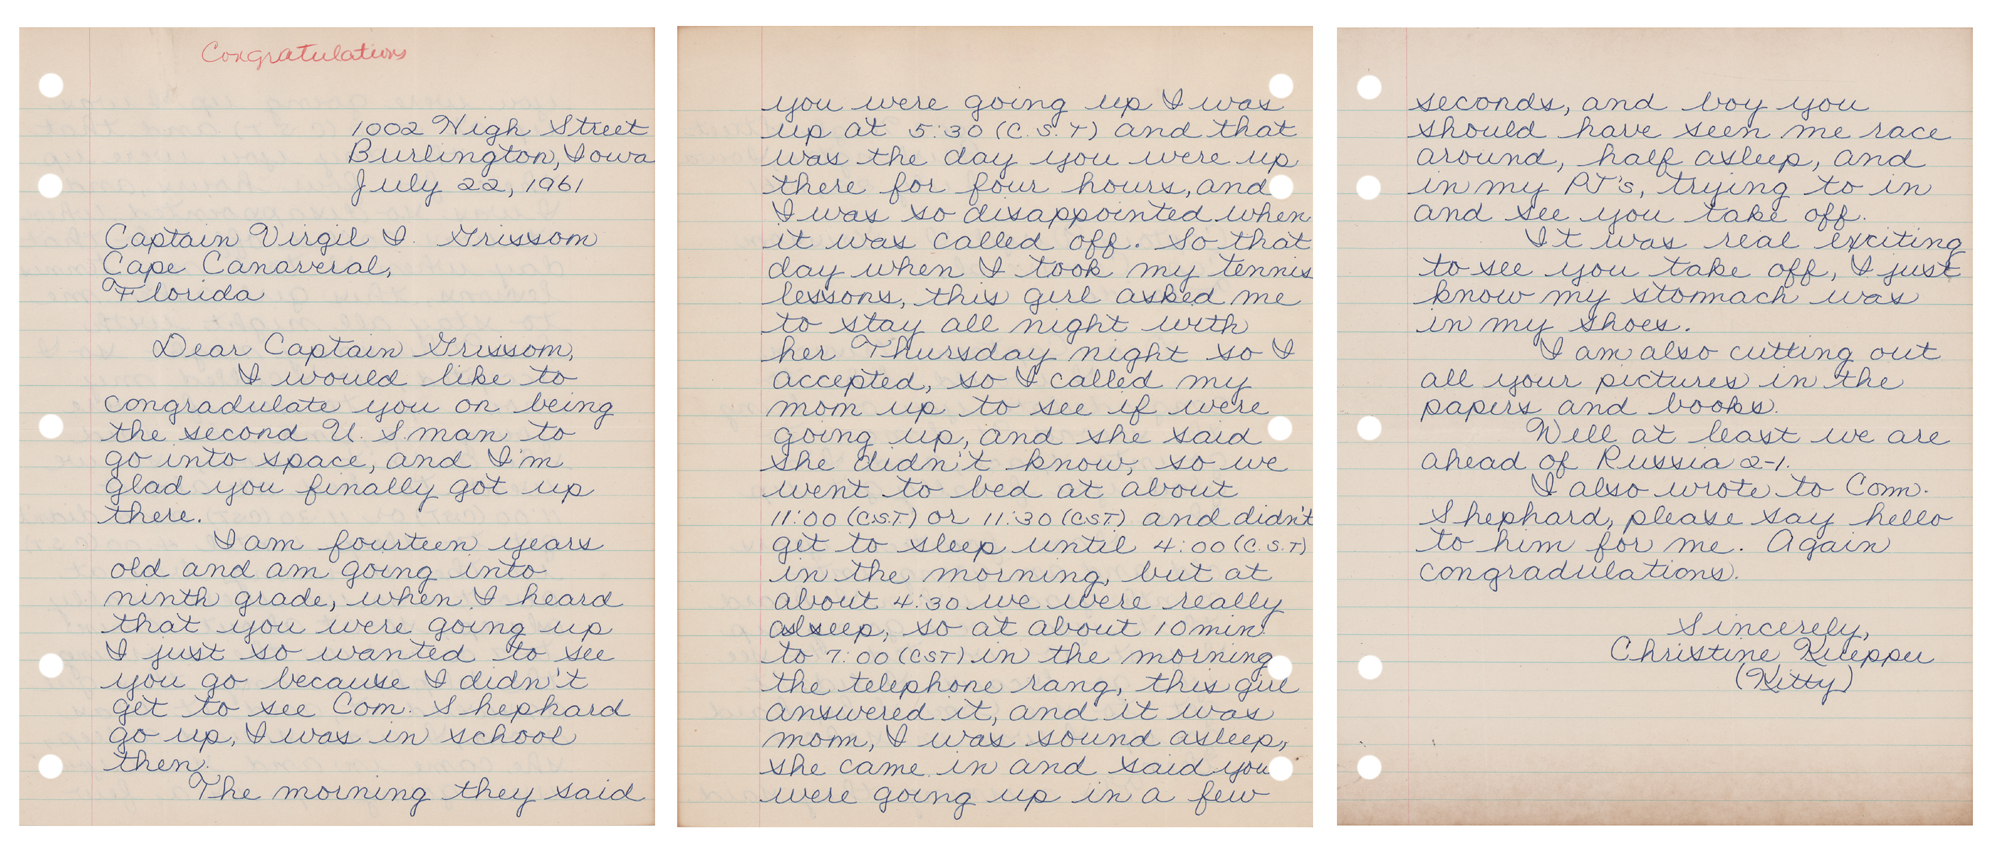 Congratulations
1002 High Street
Burlington, Iowa
July 22, 1961
Captain Virgil I. Grissom
Cape Canaveral,
Florida
Dear Captain Grissom,
I would like to
congradulate you on being
the second U. S. man to
go into space, and I'm
glad you finally got up
there.
I am fourteen years
old and am going into
ninth grade, when I heard
that you were going up
I just so wanted to see
you go because I didn't
get to see Com. Shephard
go up, I was in school
then.
The morning they said
you were going up I was
up at 5:30 (C.S.T) and that
was the day you were up
there for four hours, and
I was so disappointed when
it was called off. So that
day when I took my tennis
lessons, this girl asked me
to stay all night with
her Thursday night so I
accepted, so I called my
mom up to see if were
going up, and she said
she didn't know, so we
went to bed at about
11:00 (C.S.T.) or 11:30 (CST) and didn't
get to sleep until 4:00 (C.S.T)
in the morning, but at
about 4:30 we were really
asleep, so at about 10 min
to 7:00 (CST) in the morning
the telephone rang, this girl
answered it, and it was
mom, I was sound asleep,
she came in and said you
were going up in a few
seconds, and boy you
should have seen me race
around, half asleep, and
in my PJ's, trying to in
and see you take off.
It was real exciting
to see you take off, I just
know my stomach was
in my shoes.
I am also cutting out
all your pictures in the
papers and books.
Well at least we are
ahead of Russia 2-1.
I also wrote to Com.
Shephard, please say hello
to him for me. Again
congradulations.
Sincerely,
Christine
(Kitty)